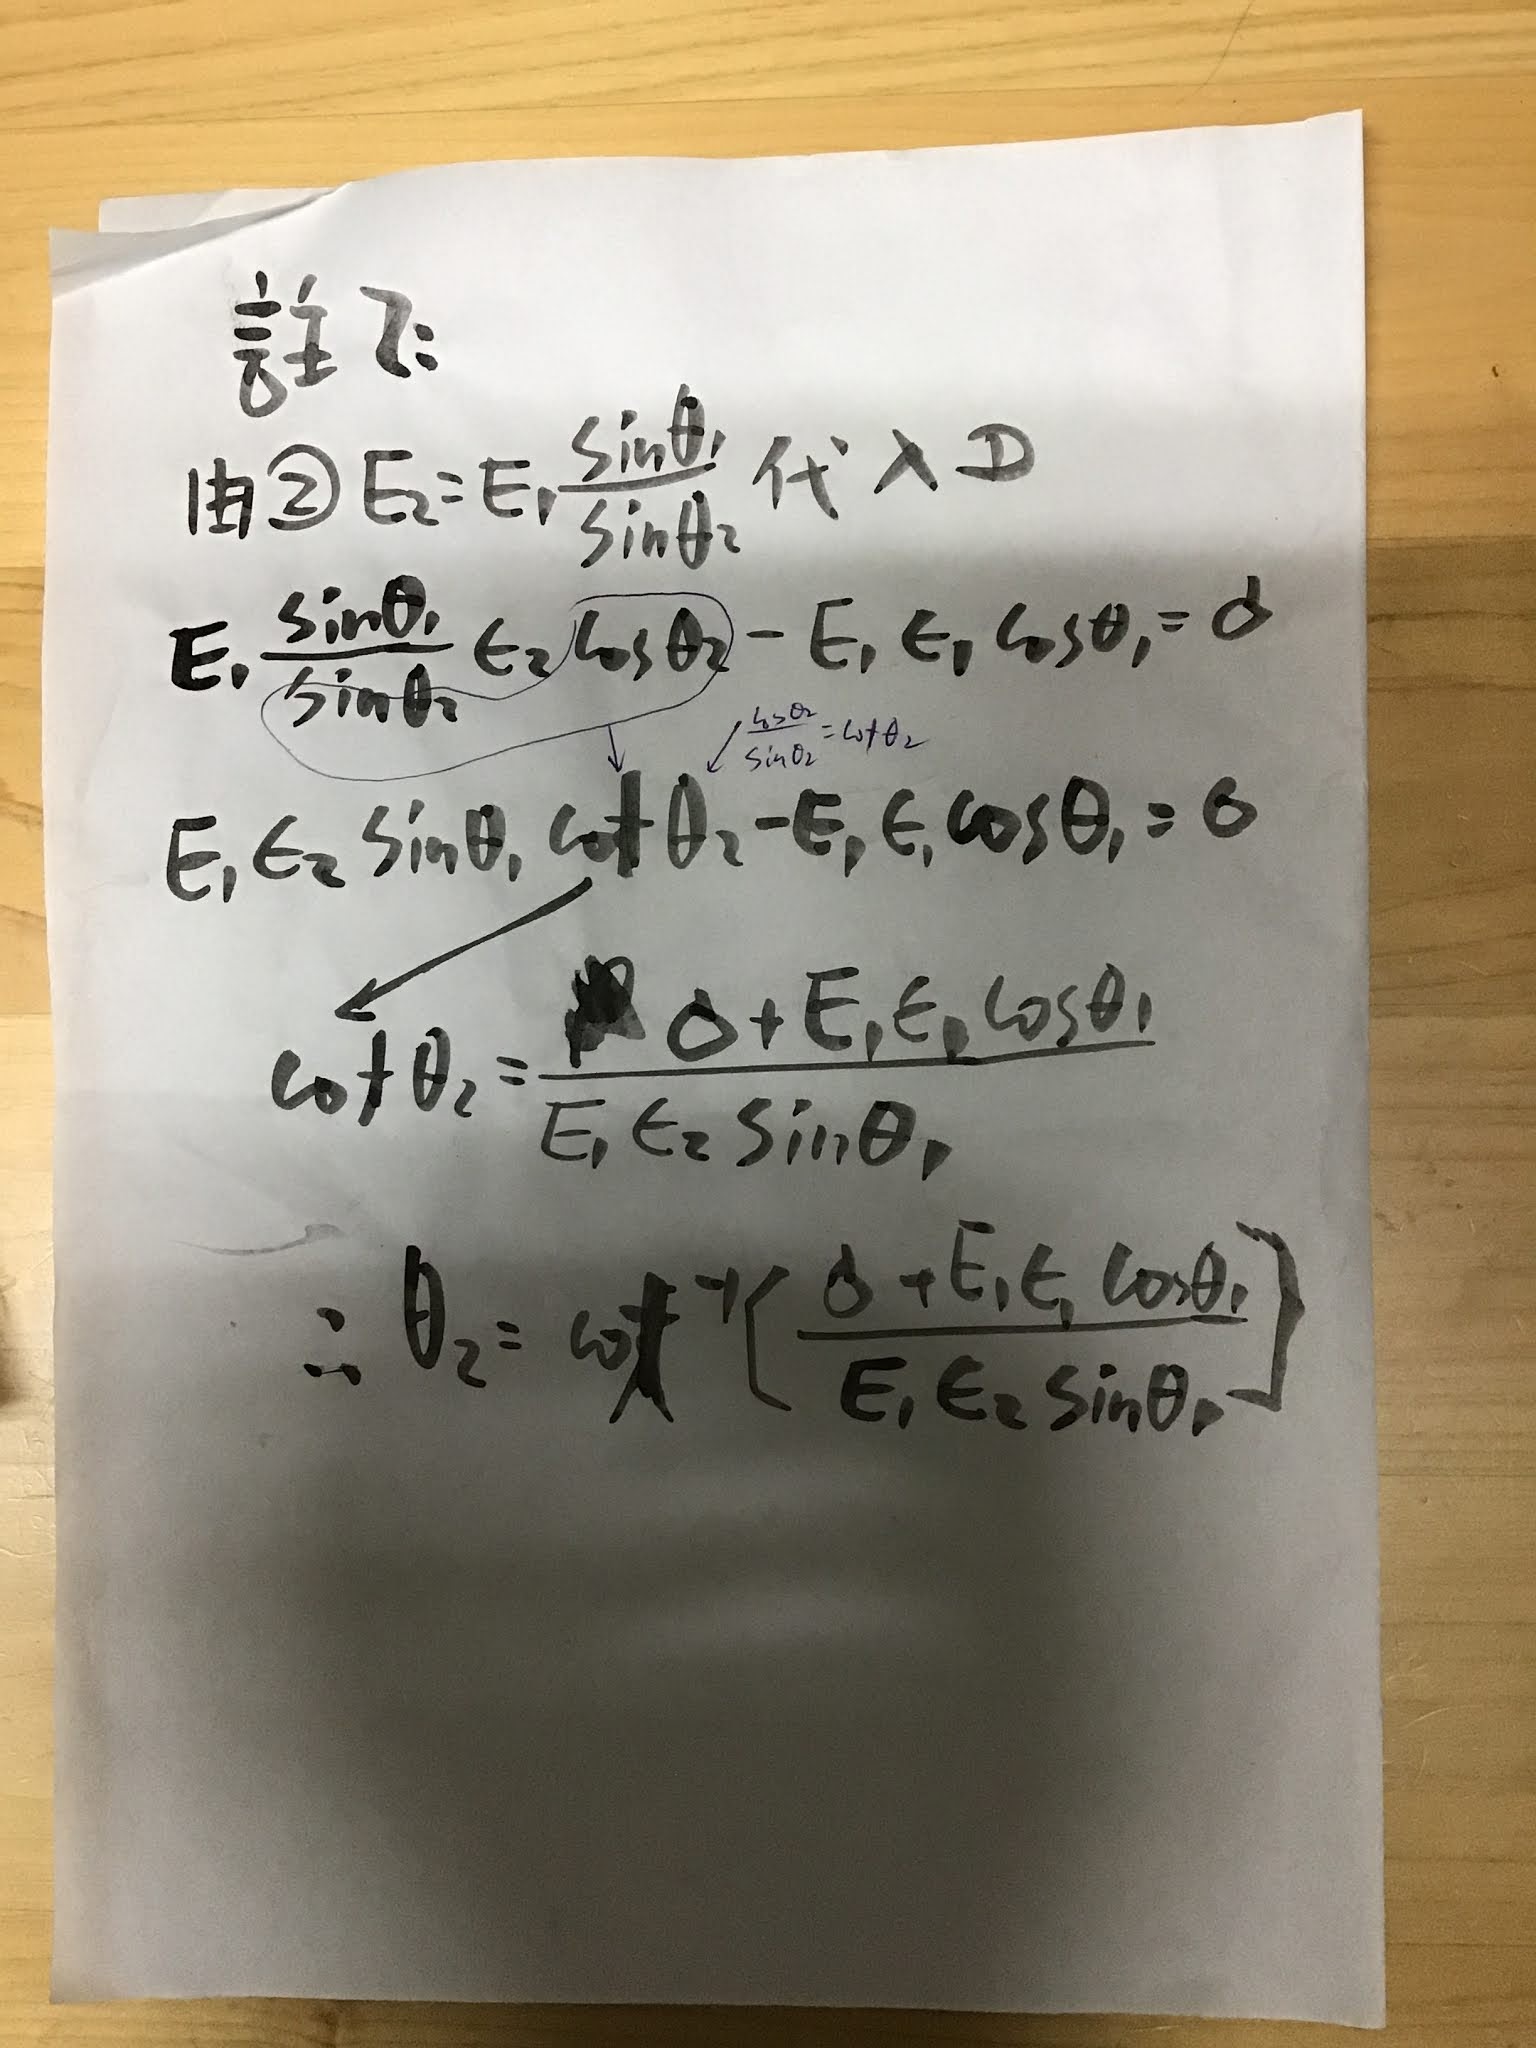 註7:
由②E₂=E₁ sinθ₁/sinθ₂ 代入D
E₁ sinθ₁/sinθ₂ ϵ₂ cosθ₂ - E₁ ϵ₁ cosθ₁ = σ
cosθ₂/sinθ₂ = cotθ₂
E₁ ϵ₂ sinθ₁ cotθ₂ - E₁ ϵ₁ cosθ₁ = σ
cotθ₂ = σ + E₁ ϵ₁ cosθ₁ / E₁ ϵ₂ sinθ₁
∴ θ₂ = cot⁻¹ [ σ + E₁ ϵ₁ cosθ₁ / E₁ ϵ₂ sinθ₁ ]